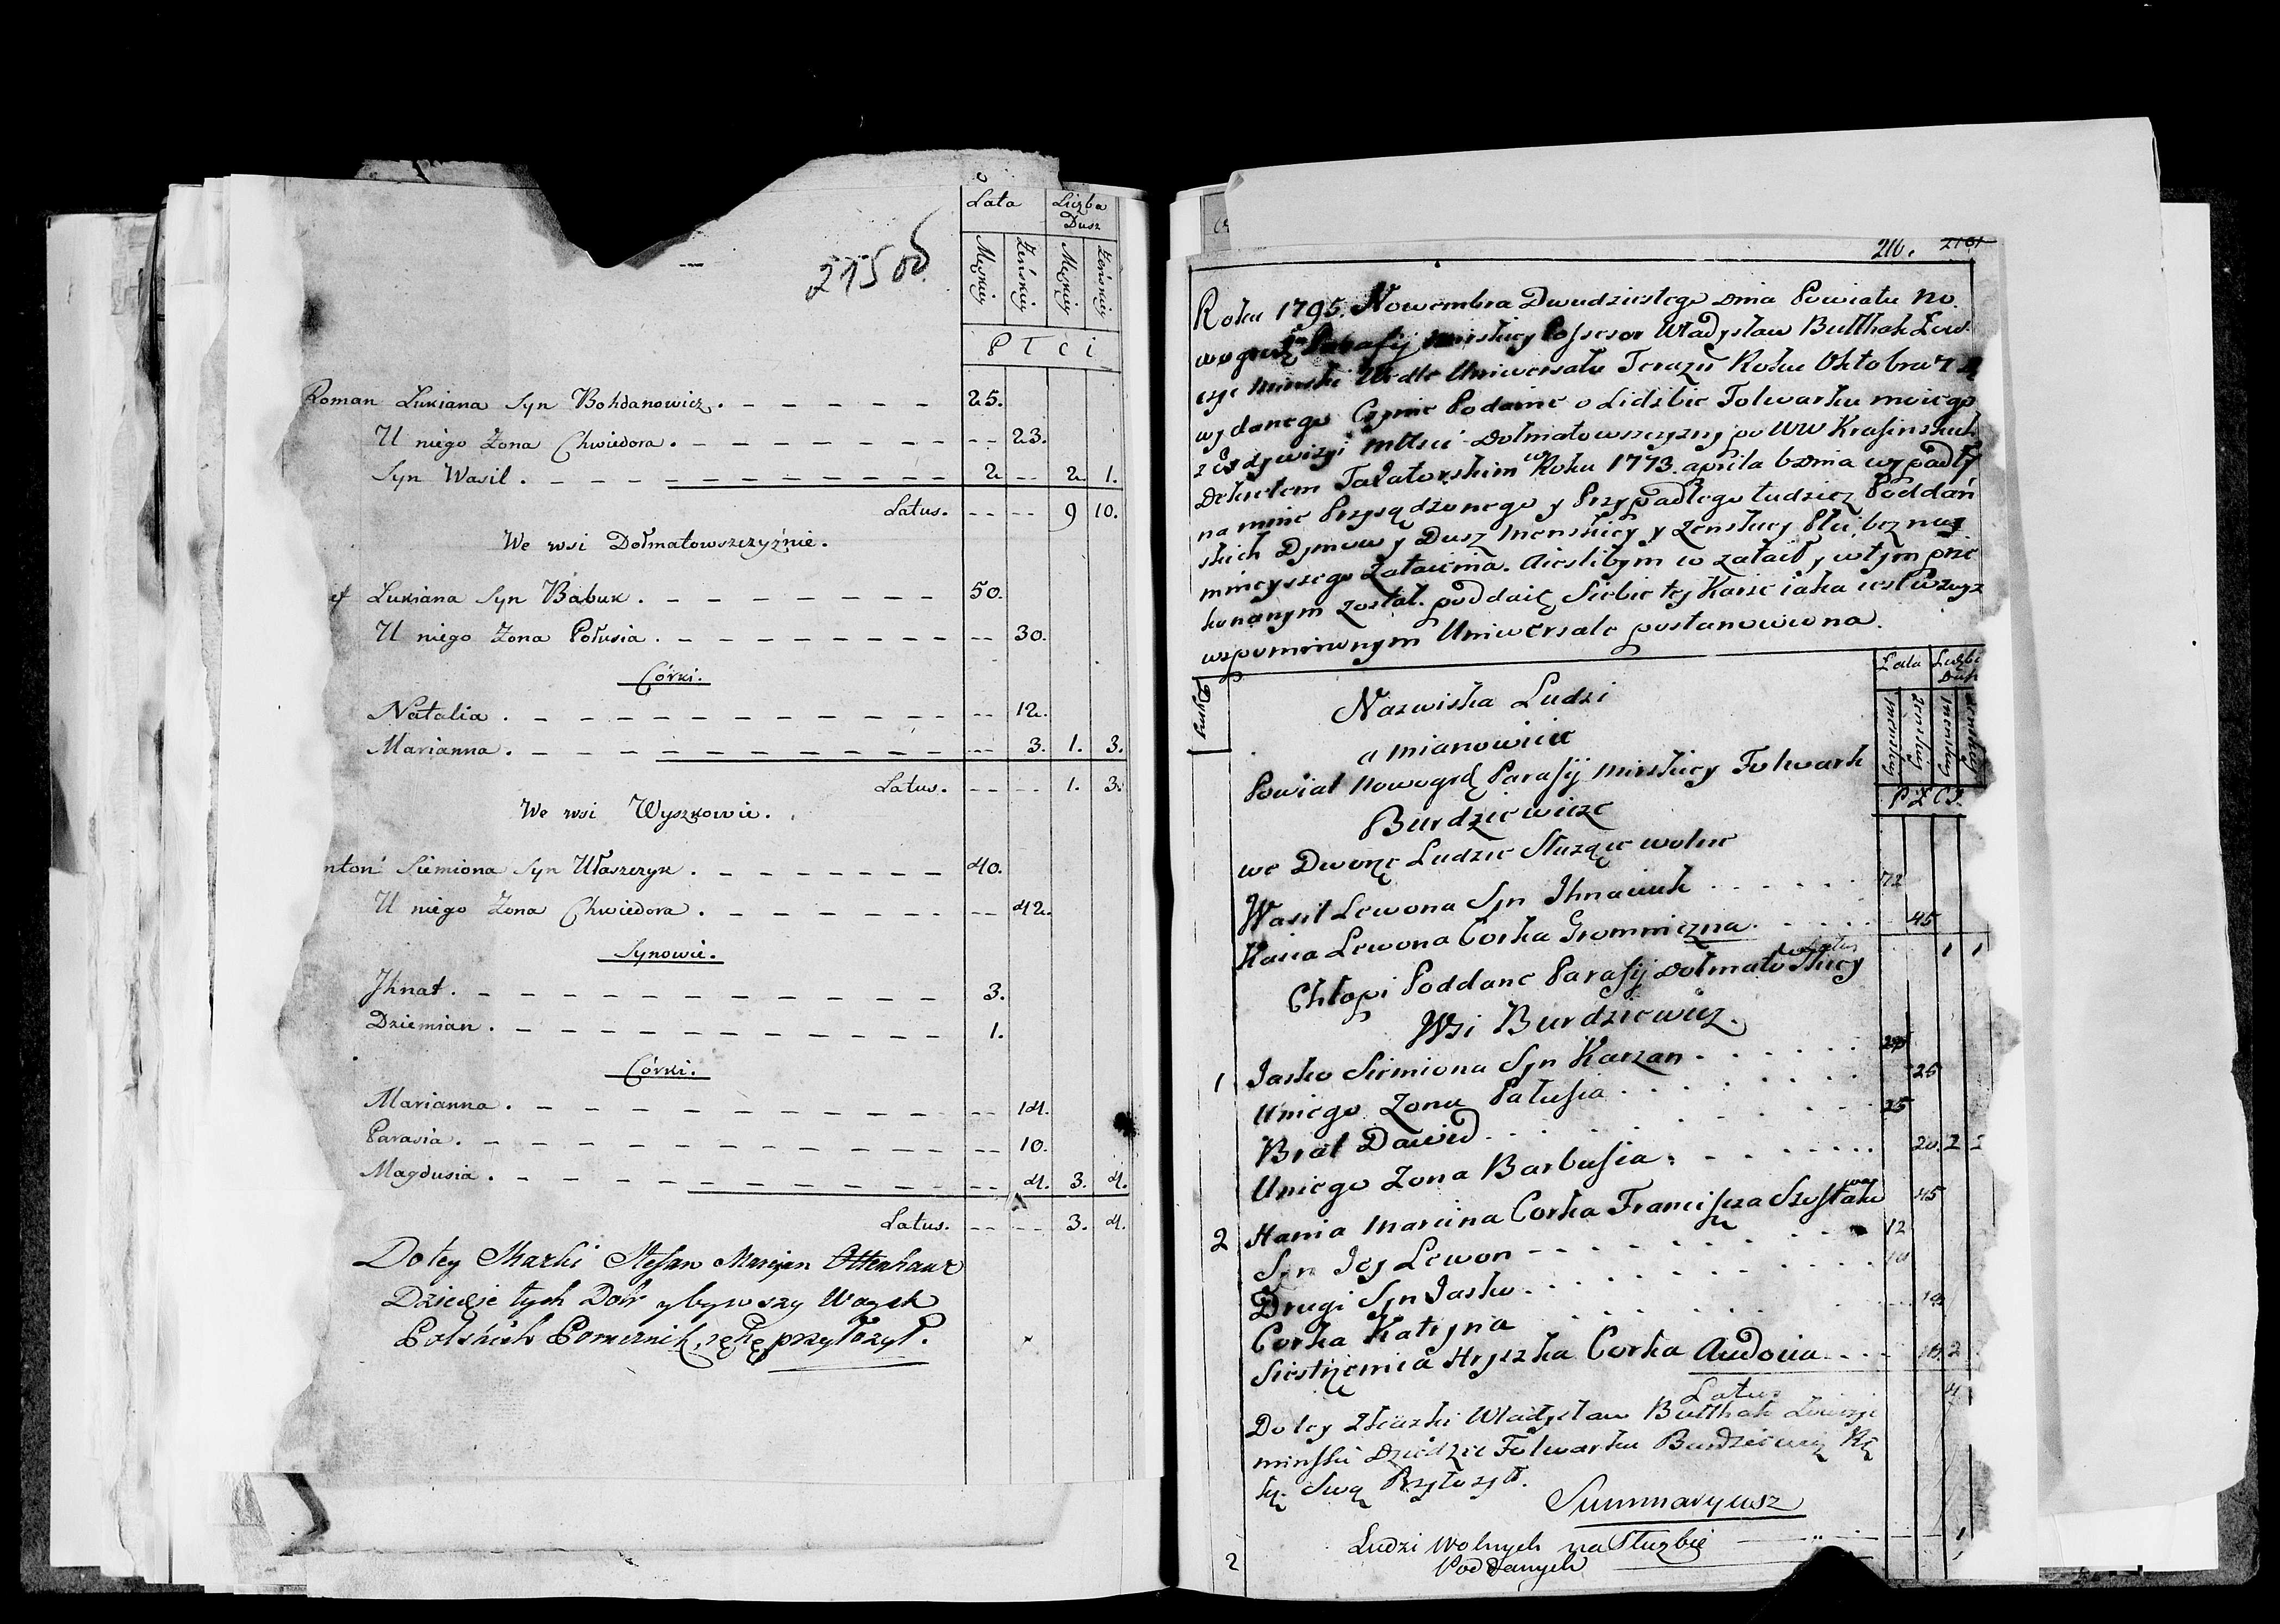 215 об
Lata Liczba Dusz
Męzkiey Żeńskiey Męzkiey Żeńskiey
P ł c i
Roman Łukiana Syn Bohdanowicz. 25.
U niego Żona Chwiedora. 23.
Syn Wasil. 2 2 1.
Latus. 9 10.
We wsi Dołmatowszczyźnie.
Łukiana Syn Babuk. 50.
U niego Żona Połusia. 30.
Córki.
Natalia. 12.
Marianna. 3. 1. 3.
Latus. 1. 3.
We wsi Wyszkowie.
nton Siemiona Syn Ułaszczyk. 40.
U niego Żona Chwiedora. 42.
Synowie.
Jhnat. 3.
Dziemian. 1.
Córki.
Marianna. 14.
Parasia. 10.
Magdusia. 4. 3. 4.
Latus. 3. 4.
Do tey Skazki Stefan Marcyan
Dziedzic tych Dóbr y bywszy Woysk
Polskich Porucznik, rękę przyłożył.
216.
Roku 1795. Nowembra Dwudziestego dnia Powiatu No
wogrdz Parafij mirskiey Possesor Władysław Bułhak Łow
czyc minski Wedle Uniwersału Terazn Roku Oktobra 7
wydanego Czynie Podanie o Liczbie Folwarku moiego
z Exdywizyi Mttsci Dołmatowszczyzny po WW Krasinskich
Dekretem Taxatorskim w Roku 1773. aprila 6 dnia wypadły
na mnie Przysądzonego y Przypadłego tudziez Poddań
skich Dymow y Dusz męnskiey y Zenskiey Płci, bez nay
mnieyszego Zataienia. A iesli bym co zataił, y w tym prze
konanym został. poddaię Siebie tey Karze iaka iest w zwyz
wspomnionym Uniwersale postanowiona.
Dymy
Nazwiska Ludzi
a mianowicie
Lata Liczba Dusz
P Ł C I.
Powiat Nowogrd Parafij mirskiey Folwark
Burdziewicze
we Dworze Ludzie Służące wolne
Wasil Lewona Syn Ihnaciuk 72
Kasia Lewona Corka Gromniczna. 45
Latus 1 1
Chłopi Poddane Parafij Dołmatowskiey
Wsi Burdziewicz.
1 Jasko Siemiona Syn Karzan.
U niego Zona Pałusia 25
Brat Dawid 25
U niego Zona Barbusia. 20. 2
2 Hania Marcina Corka Franciszka Szostakowa 45
Syn Jey Lewon 12
Drugi Syn Jasko. 10
Corka Katryna
Siestrzenica Hryszka Corka Audocia 2
Latus 4
Do tey Skazki Władysław Bułhak Łowczyc
minski Dziedzic Folwarku Burdziewicz Rę
kę Swą Przyłozył.
Summaryusz
Ludzi Wolnych na Służbie 1
2 Poddanych